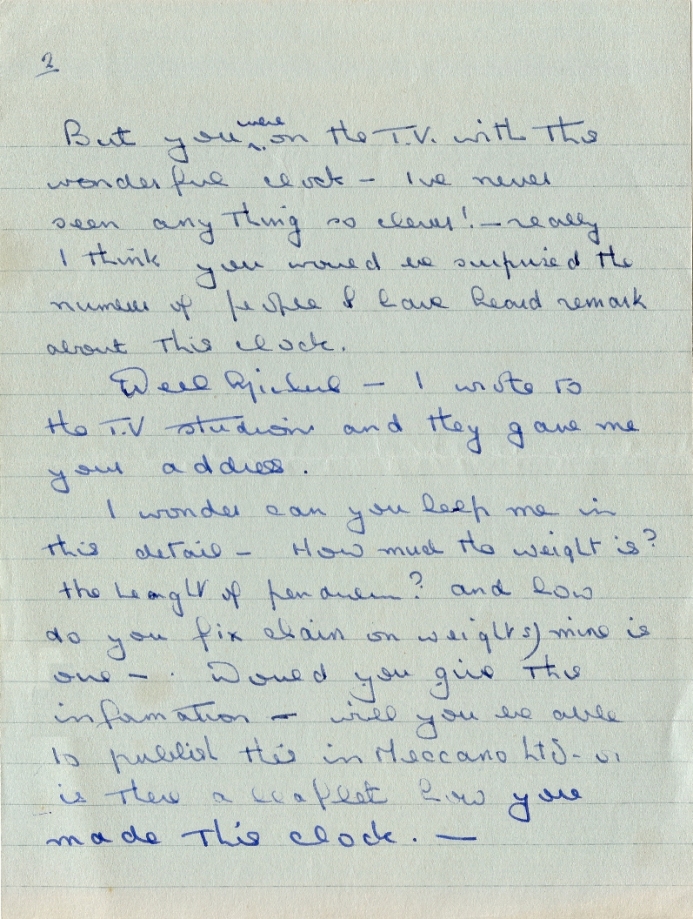 2
But you were on the T.V. with this
wonderful clock - Ive never
seen any thing so clever! - really
I think you would be surprised the
number of people I have heard remark
about this clock.
Well Michael - I wrote to
the T.V studion and they gave me
your address.
I wonder can you help me in
this detail - How much the weight is?
the lenght of pendulem? and how
do you fix chain on weight(s) mine is
one - . Would you give this
information - will you be able
to publish this in Meccano Ltd - or
is there a leaflet how you
made this clock. -